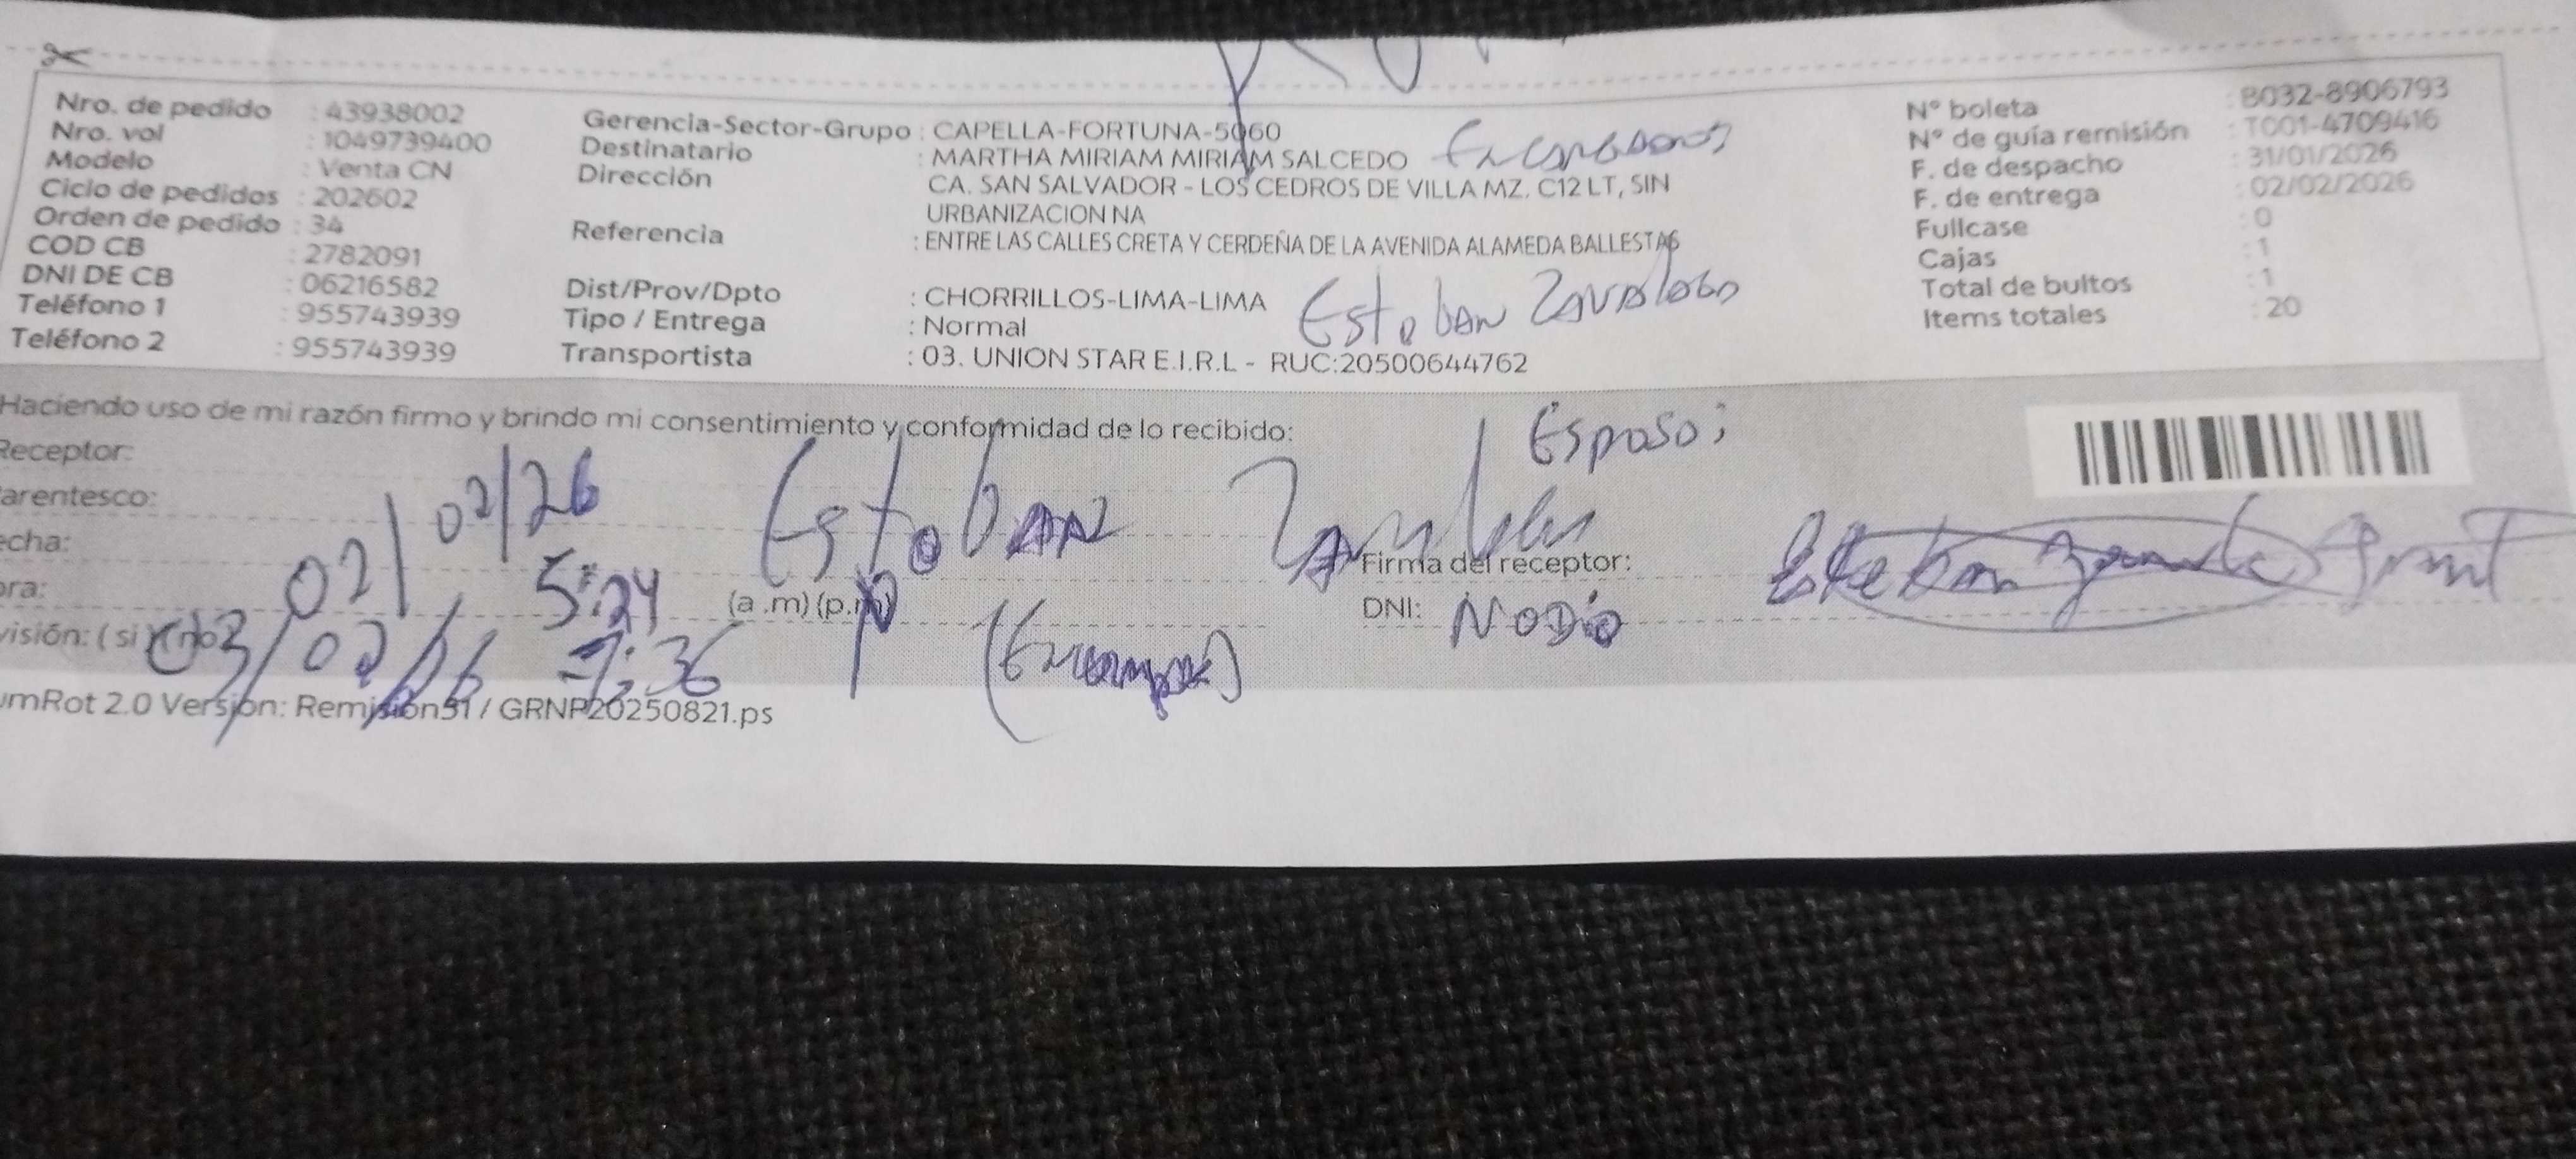 Nro. de pedido : 43938002
Nro. vol : 1049739400
Modelo : Venta CN
Ciclo de pedidos : 202602
Orden de pedido : 34
COD CB : 2782091
DNI DE CB : 06216582
Teléfono 1 : 955743939
Teléfono 2 : 955743939
Gerencia-Sector-Grupo : CAPELLA-FORTUNA-5060
Destinatario : MARTHA MIRIAM MIRIAM SALCEDO
Dirección CA. SAN SALVADOR - LOS CEDROS DE VILLA MZ. C12 LT, SIN
URBANIZACION NA
Referencia : ENTRE LAS CALLES CRETA Y CERDEÑA DE LA AVENIDA ALAMEDA BALLESTAS
Dist/Prov/Dpto : CHORRILLOS-LIMA-LIMA
Esteban
Tipo / Entrega : Normal
Transportista : 03. UNION STAR E.I.R.L - RUC:20500644762
N° boleta : B032-8906793
N° de guía remisión : T001-4709416
F. de despacho : 31/01/2026
F. de entrega : 02/02/2026
Fullcase : 0
Cajas : 1
Total de bultos : 1
Items totales : 20
Haciendo uso de mi razón firmo y brindo mi consentimiento y conformidad de lo recibido:
Receptor:
Esposo;
arentesco:
02/02/26 Esteban
echa:
ora: 5:24 (a .m) (p.m)
Firma del receptor:
DNI: NODIO
visión: ( si ) ( no
03/02/26 7:36
umRot 2.0 Version: Remision31 / GRNP20250821.ps